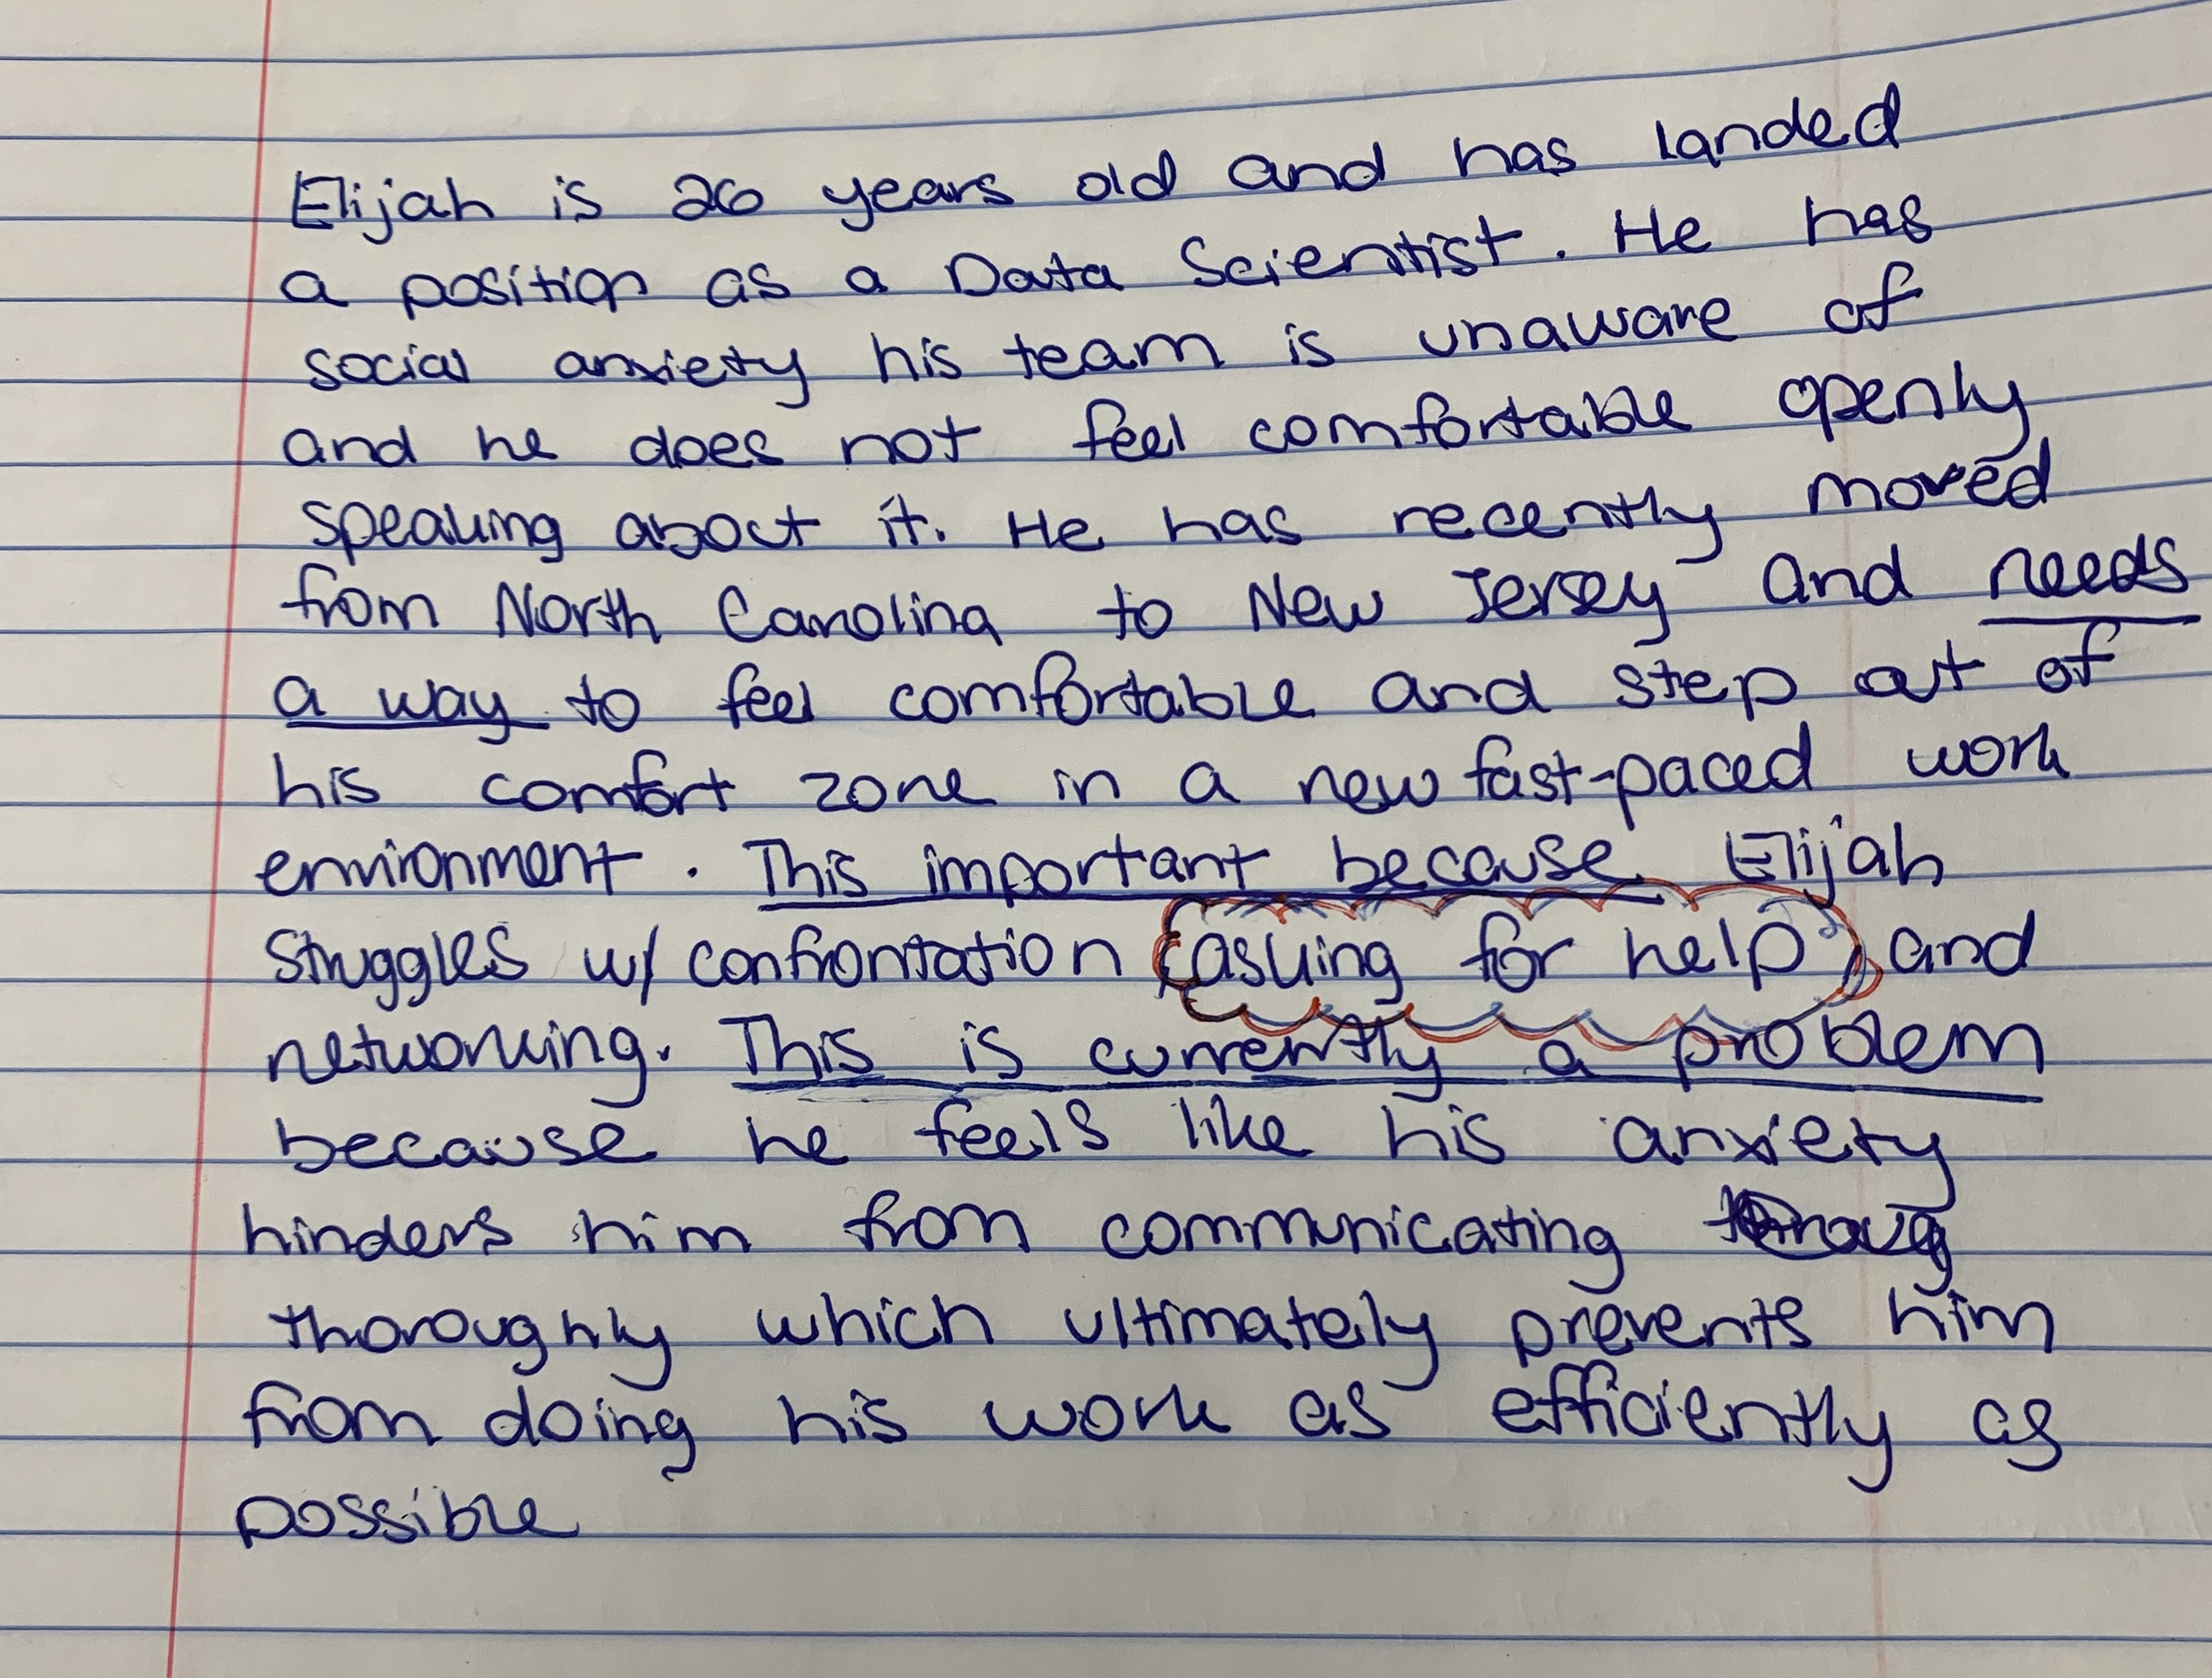 Elijah is 26 years old and has landed
a position as a Data Scientist. He has
social anxiety his team is unaware of
and he does not feel comfortable openly
speaking about it. He has recently moved
from North Carolina to New Jersey and needs
a way to feel comfortable and step out of
his comfort zone in a new fast-paced work
environment. This important because Elijah
struggles w/ confrontation (asking for help) and
networking. This is currently a problem
because he feels like his anxiety
hinders him from communicating
thoroughly which ultimately prevents him
from doing his work as efficiently as
possible